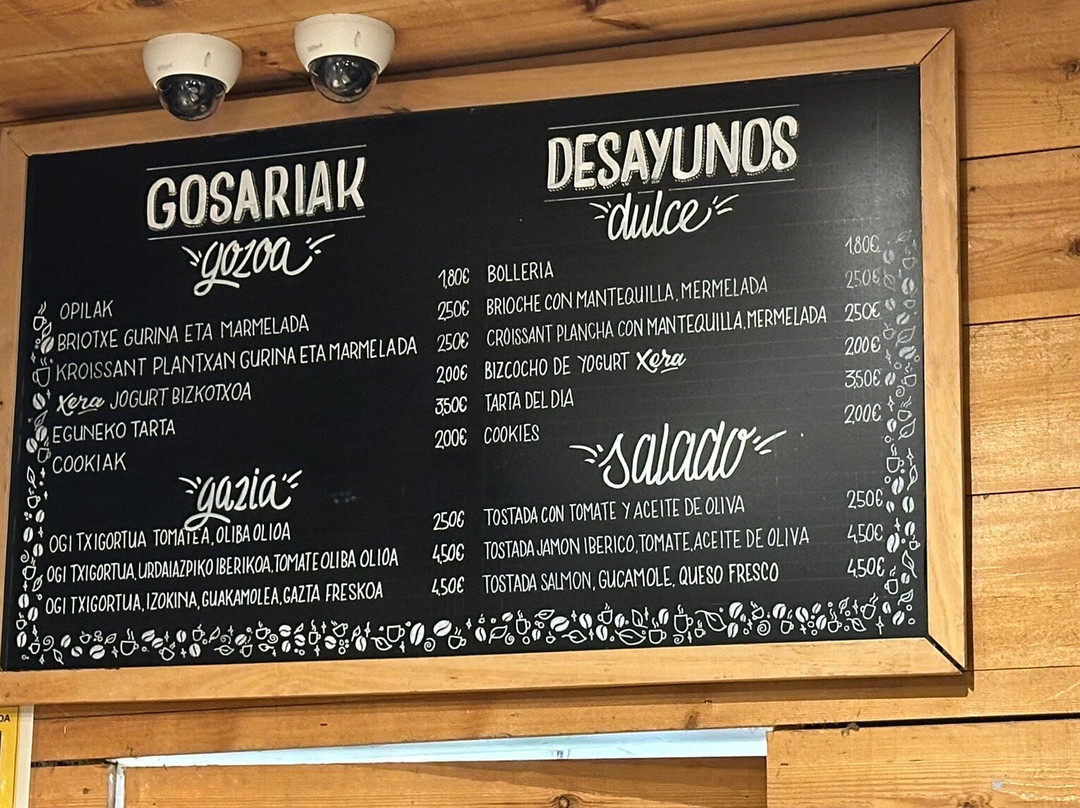 GOSARIAK
gozoa
OPILAK 1,80€
BRIOTXE GURINA ETA MARMELADA 2,50€
KROISSANT PLANTXAN GURINA ETA MARMELADA 2,50€
Xera JOGURT BIZKOTXOA 2,00€
EGUNEKO TARTA 3,50€
COOKIAK 2,00€
gazia
OGI TXIGORTUA TOMATEA, OLIBA OLIOA 2,50€
OGI TXIGORTUA, URDAIAZPIKO IBERIKOA, TOMATE OLIBA OLIOA 4,50€
OGI TXIGORTUA, IZOKINA, GUAKAMOLEA, GAZTA FRESKOA 4,50€
DESAYUNOS
dulce
BOLLERIA 1,80€
BRIOCHE CON MANTEQUILLA, MERMELADA 2,50€
CROISSANT PLANCHA CON MANTEQUILLA, MERMELADA 2,50€
BIZCOCHO DE YOGURT Xera 2,00€
TARTA DEL DIA 3,50€
COOKIES 2,00€
salado
TOSTADA CON TOMATE Y ACEITE DE OLIVA 2,50€
TOSTADA JAMON IBERICO, TOMATE, ACEITE DE OLIVA 4,50€
TOSTADA SALMON, GUCAMOLE, QUESO FRESCO 4,50€